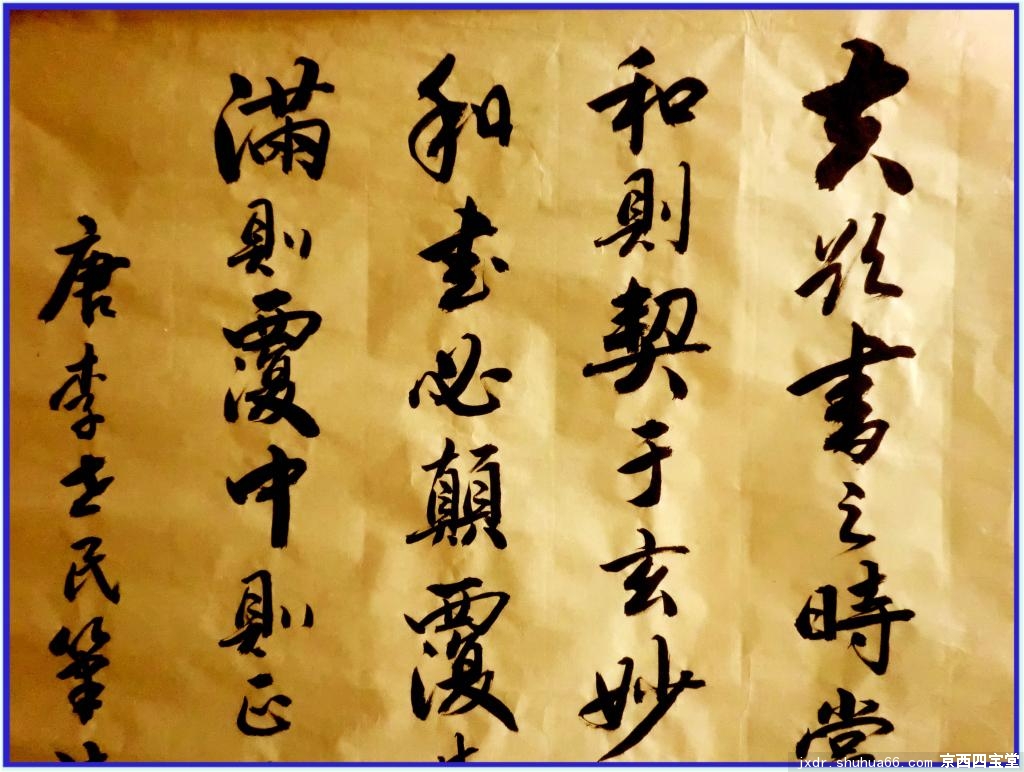 夫欲書之時當
和則契于玄妙
和書必顛覆
滿則覆中則正
唐李世民筆
jxdr.shuhua66.com 京西四宝堂